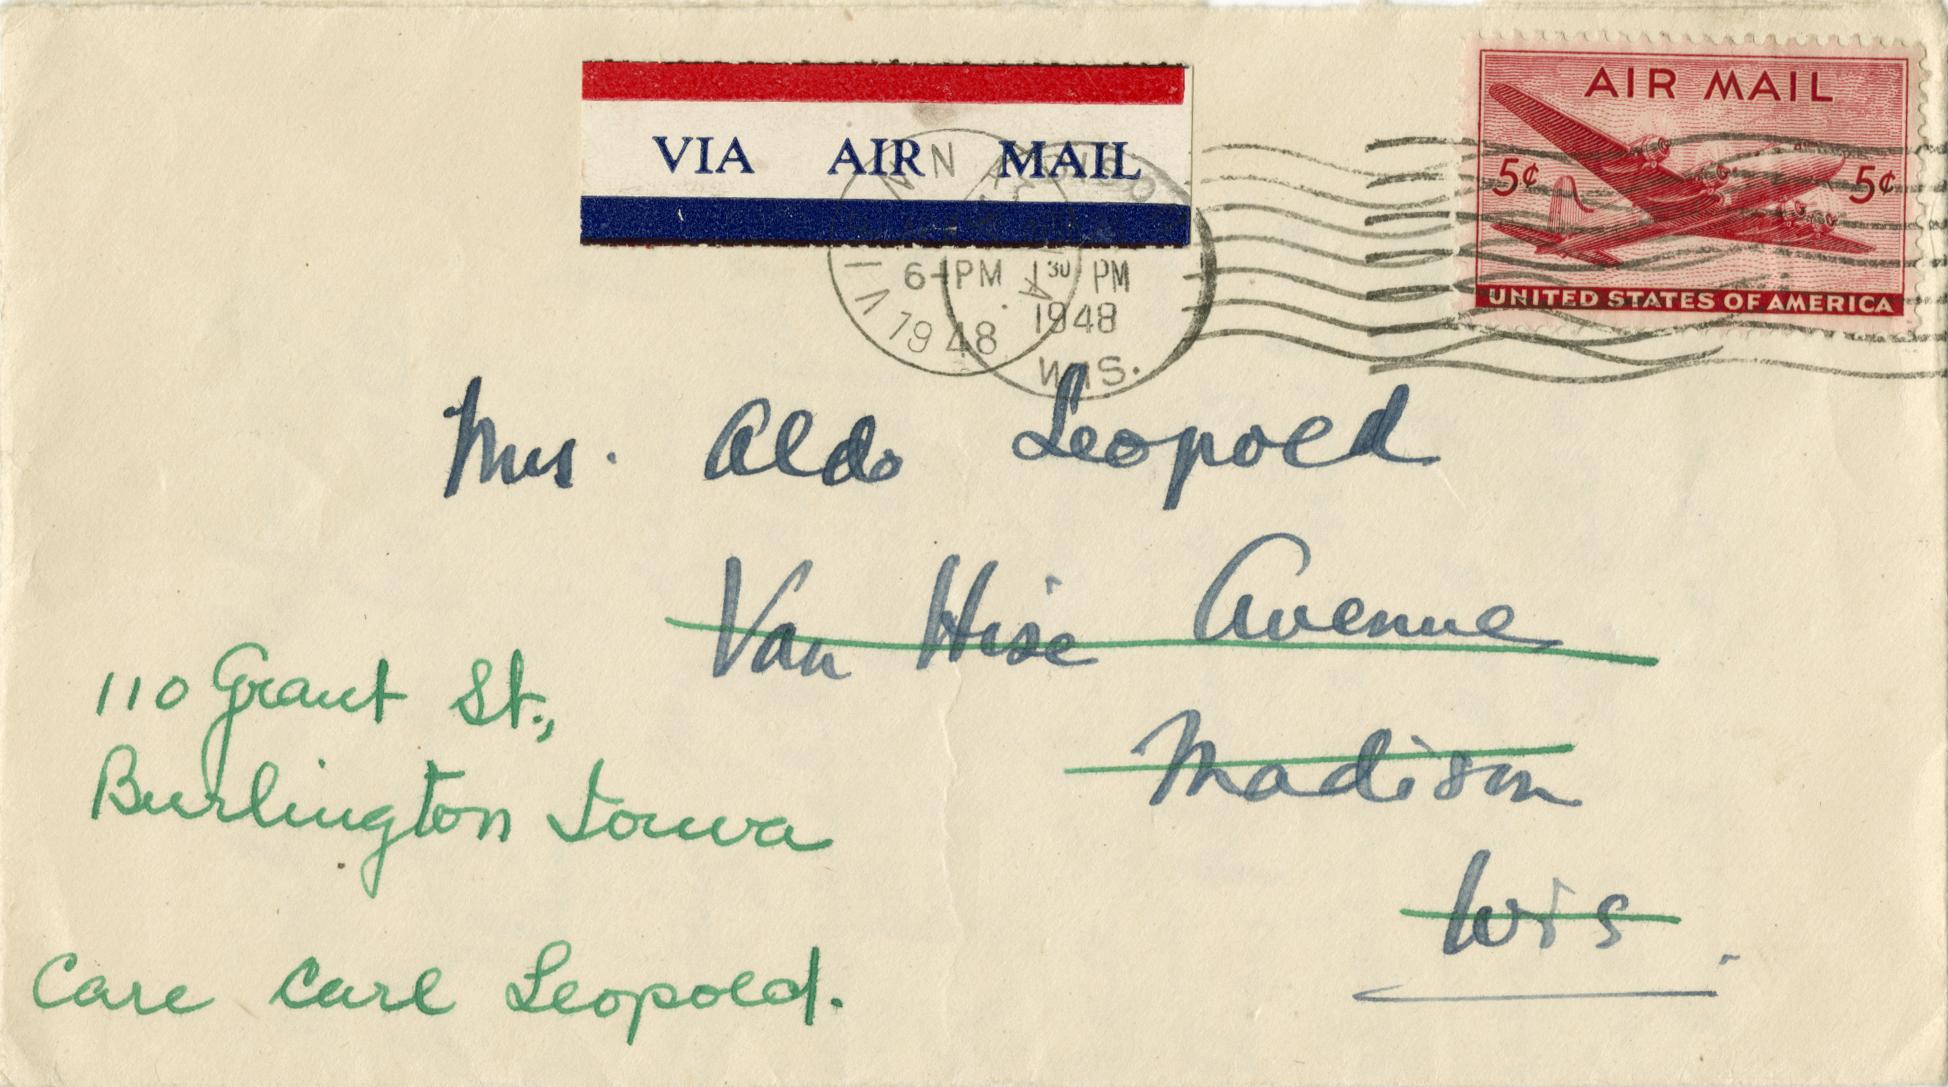 AIR MAIL
5¢ 5¢
UNITED STATES OF AMERICA
VIA AIR MAIL
6-PM
1948
1 30 PM
1948
WIS.
Mrs. Aldo Leopold
Van Hise Avenue
Madison
Wis.
110 Grant St.,
Burlington Iowa
Care Carl Leopold.